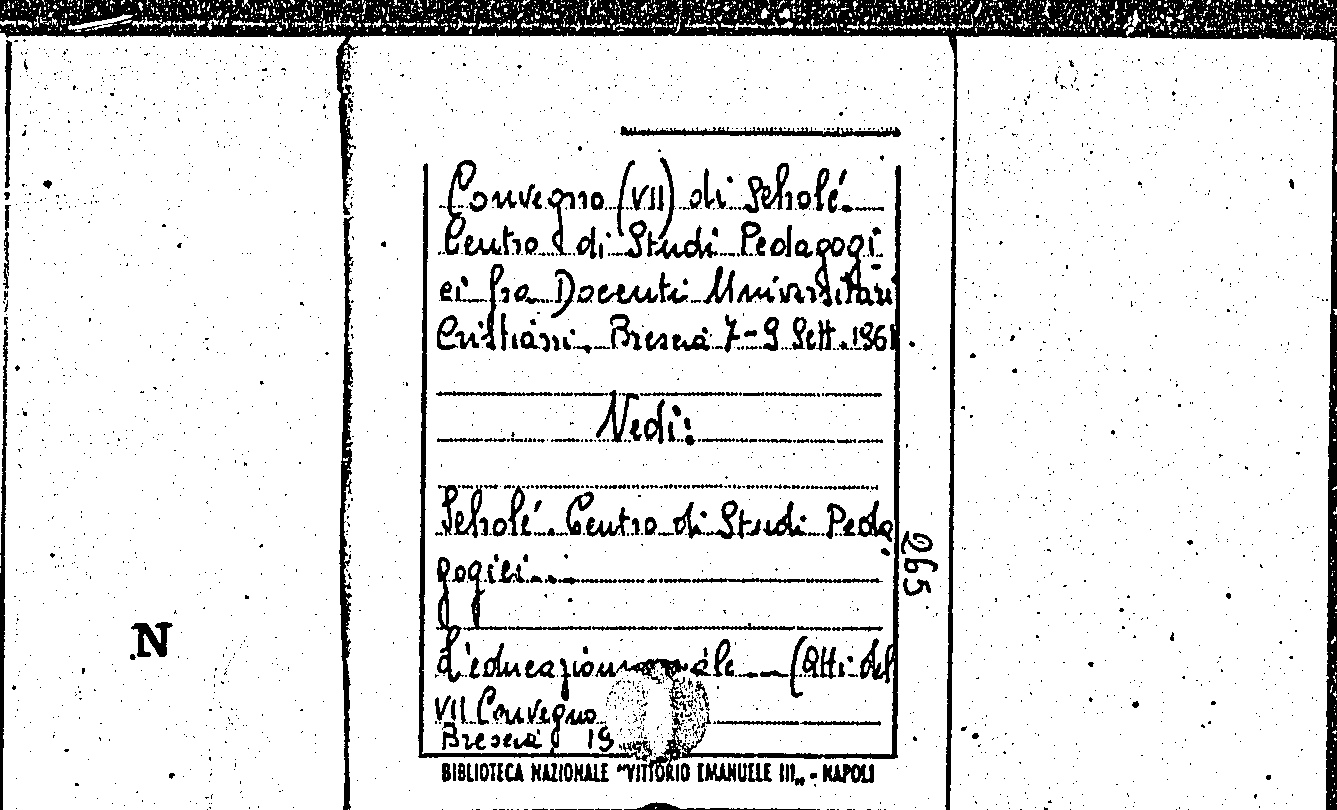 Convegno (VII) di Scholé.
Centro di Studi Pedagogi
ci fra Docenti Universitari
Cristiani. Brescia 7-9 Sett. 1961
Vedi:
Scholé. Centro di Studi Peda
gogici...
265
N
L'educazione (Atti del
VII Convegno
Brescia, 19
BIBLIOTECA NAZIONALE "VITTORIO EMANUELE III„ - NAPOLI